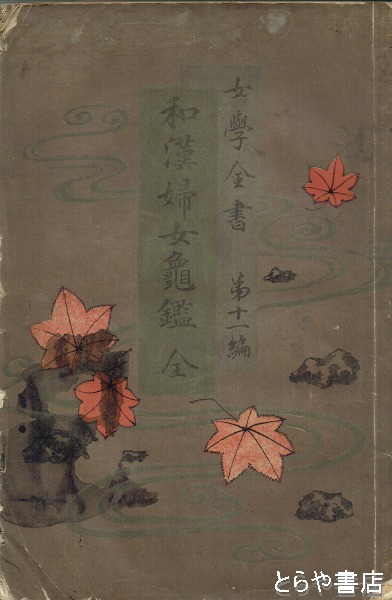 女學全書 第十一編
和漢婦女龜鑑 全
とらや書店